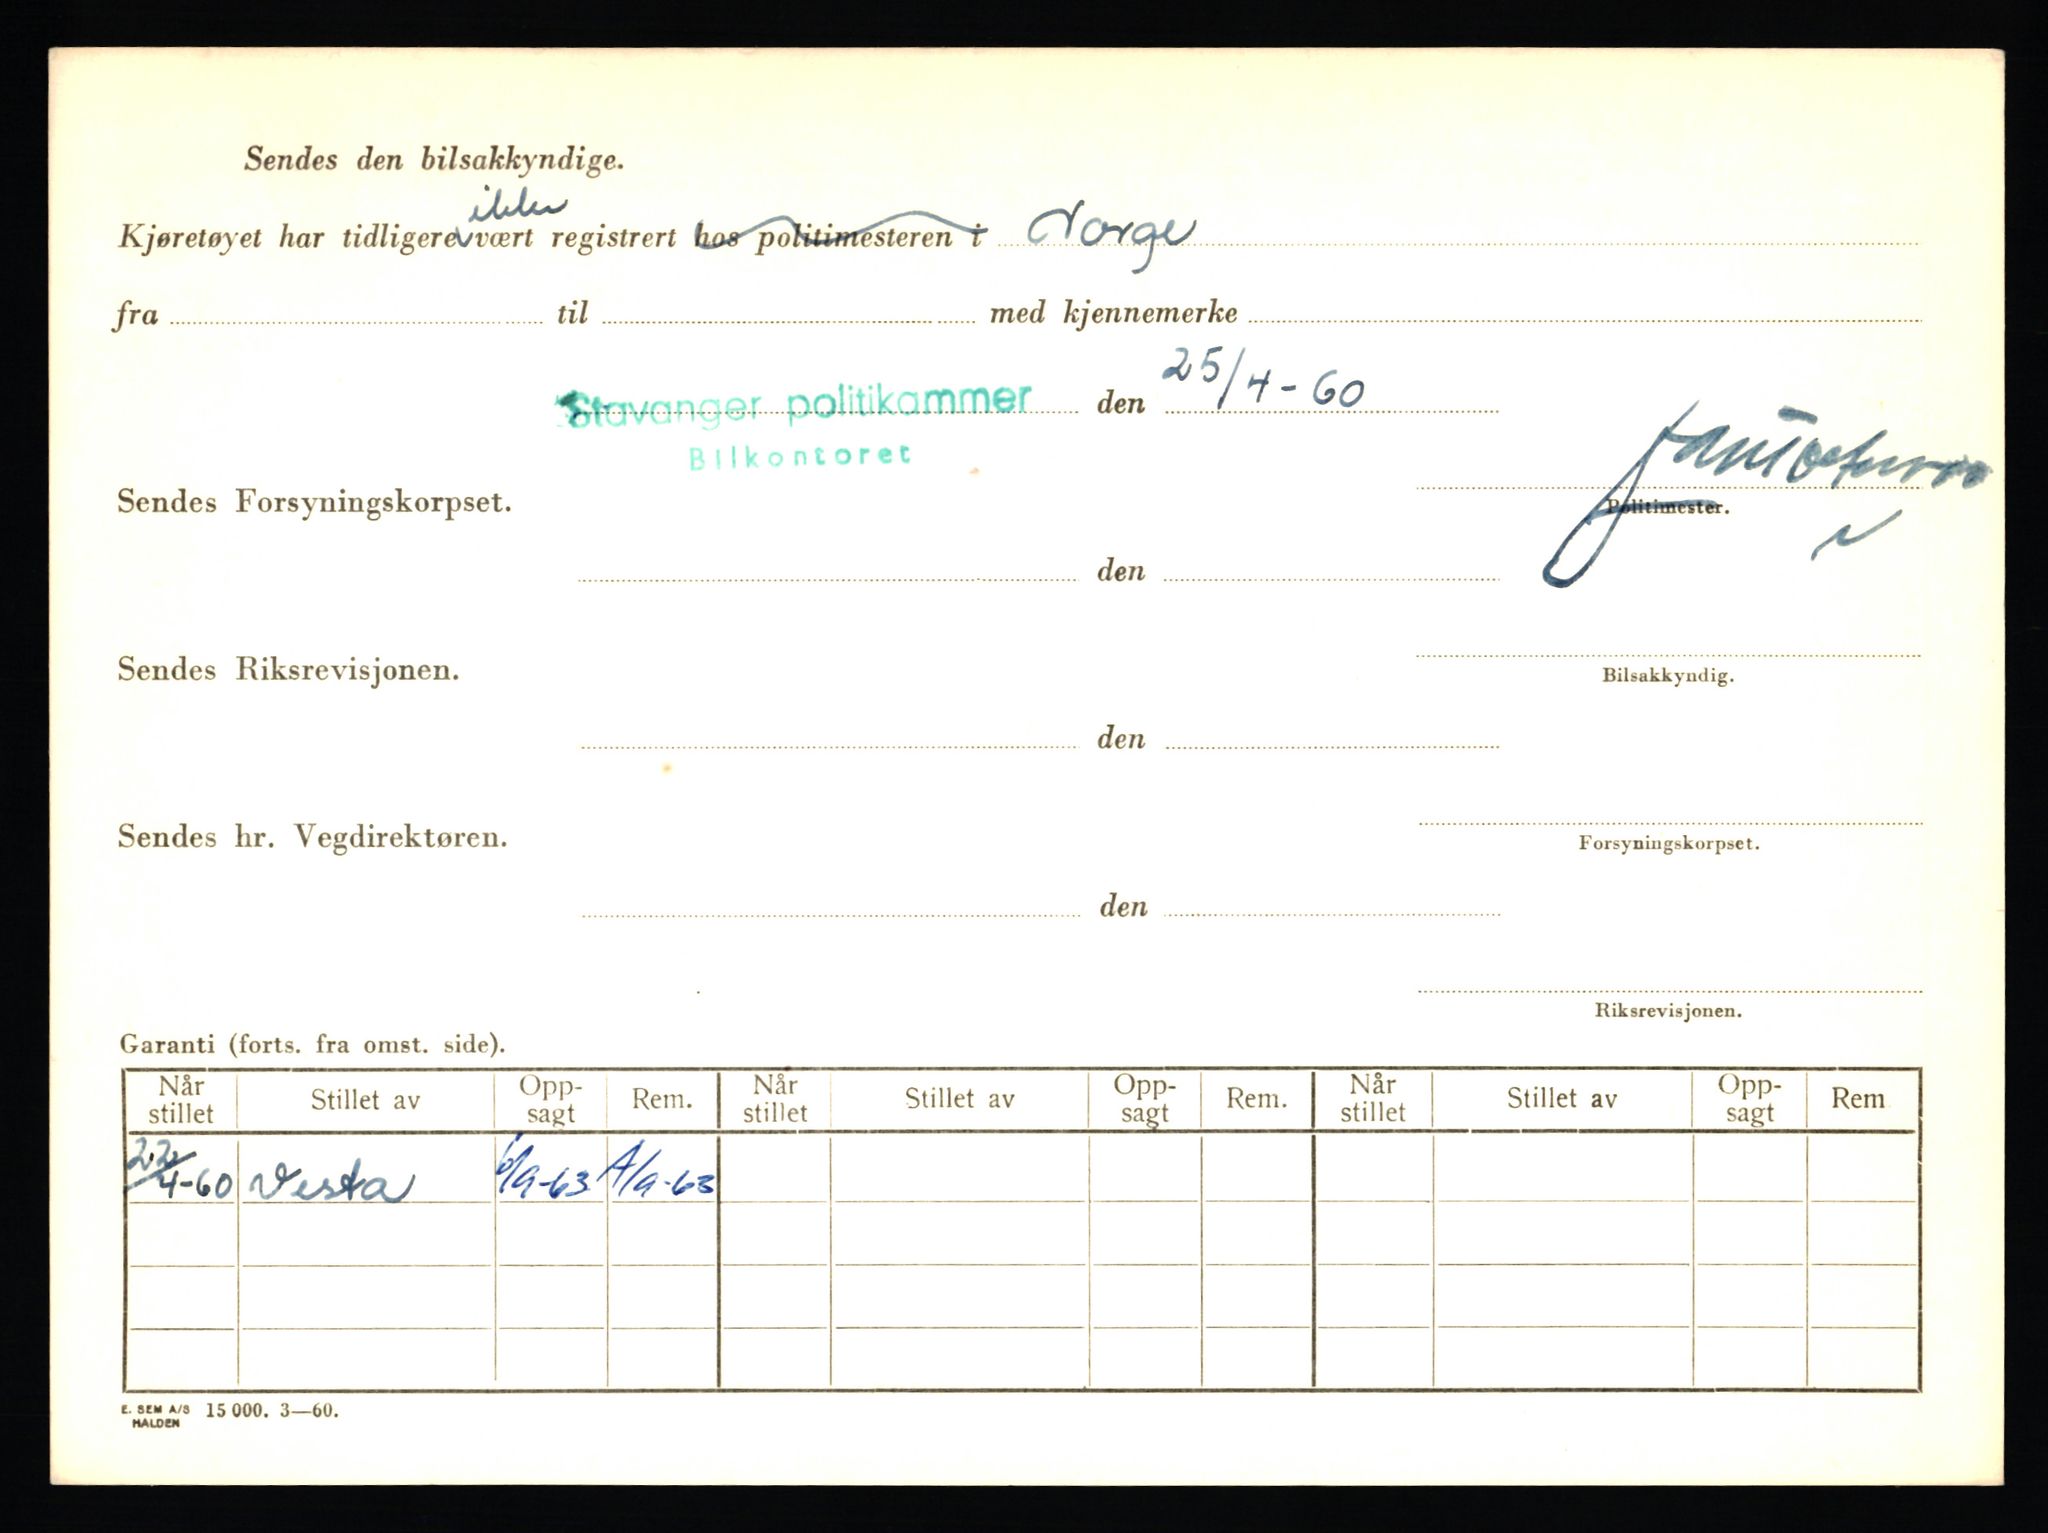 Sendes den bilsakkyndige.
ikke
Kjøretøyet har tidligere vært registrert hos politimesteren i Norge
fra til med kjennemerke
Stavanger politikammer den 25/4-60
Bilkontoret
Sendes Forsyningskorpset. Politimester.
den
Sendes Riksrevisjonen. Bilsakkyndig.
den
Sendes hr. Vegdirektøren. Forsyningskorpset.
den
Riksrevisjonen.
Garanti (forts. fra omst. side).
Når stillet Stillet av Opp-sagt Rem. Når stillet Stillet av Opp-sagt Rem. Når stillet Stillet av Opp-sagt Rem
22/4-60 Vesta 6/9-63
E. SEM A/S HALDEN 15 000. 3—60.